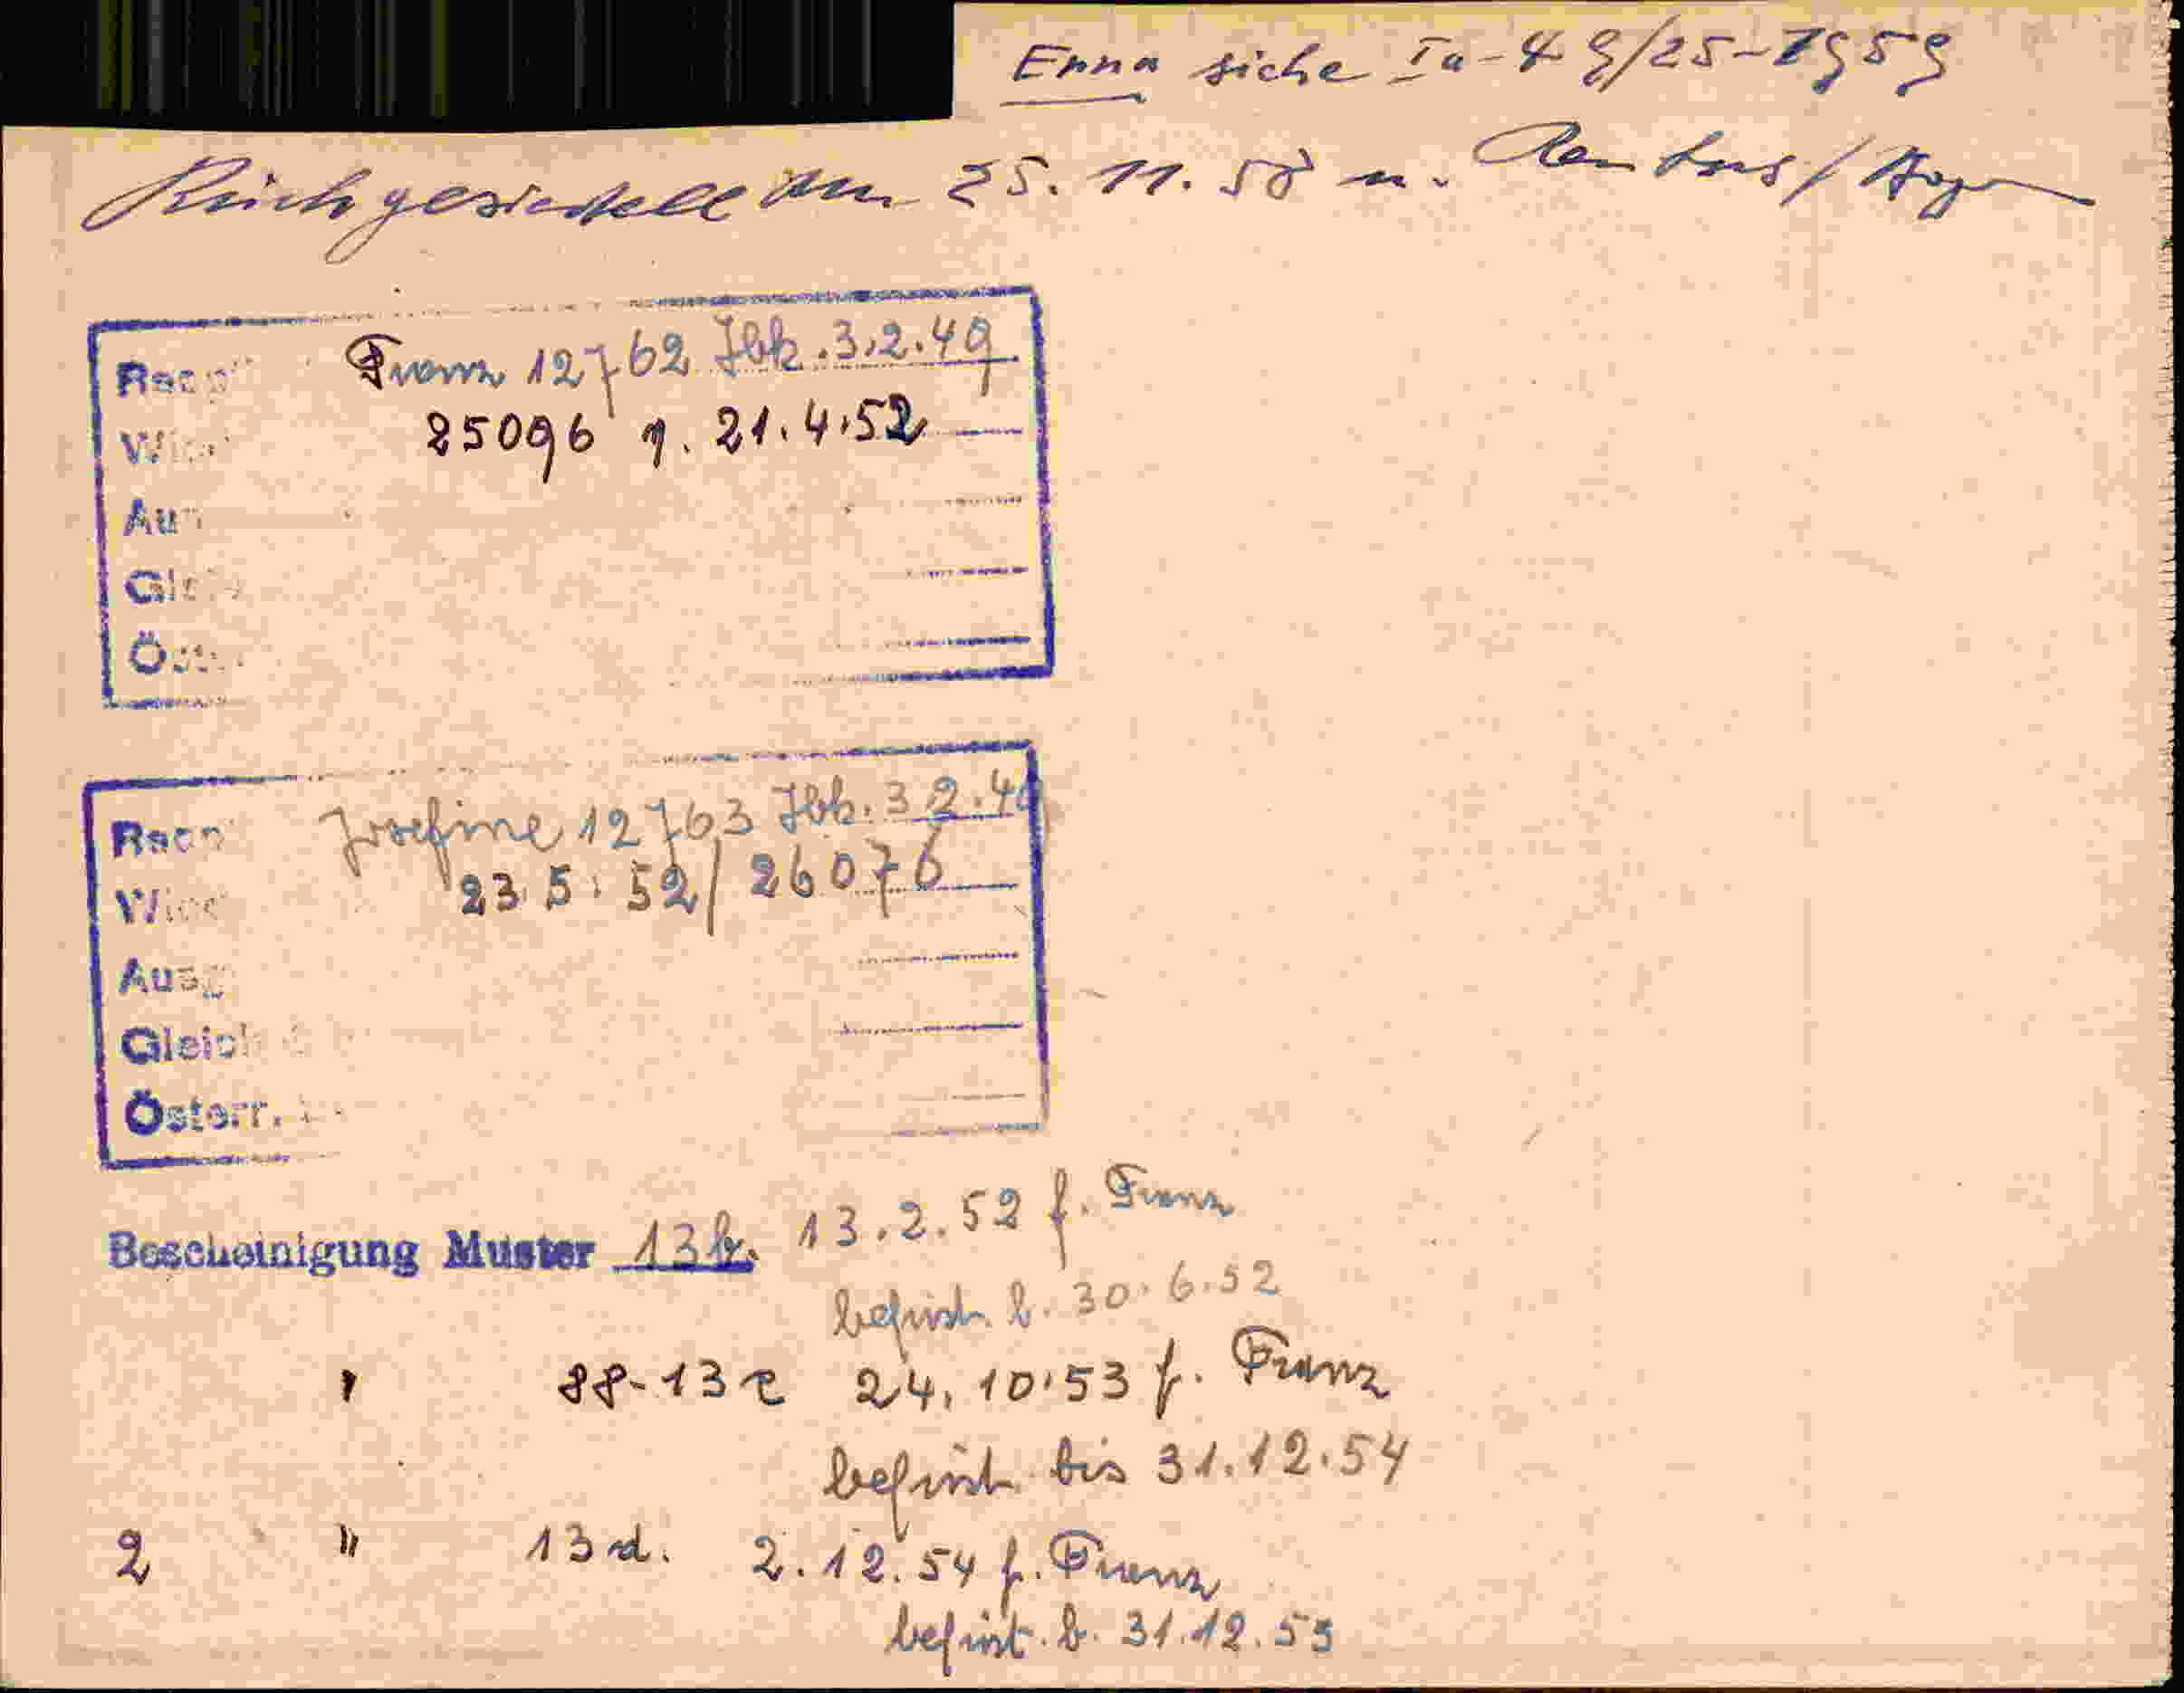 Erna siehe Ia-49/25-1959
Rückgesiedelt am 25. 11. 58 n.
Franz 12762 Jbk. 3.2.49
25096 v. 21.4.52
Josefine 12763 Jbk. 3.2.49
23.5.52/26076
Österr.
Bescheinigung Muster 13b. 13.2.52 f. Franz
befrist. b. 30.6.52
" 13c 24.10.53 f. Franz
befrist. bis 31.12.54
2 " 13d. 2.12.54 f. Franz
befrist. b. 31.12.55